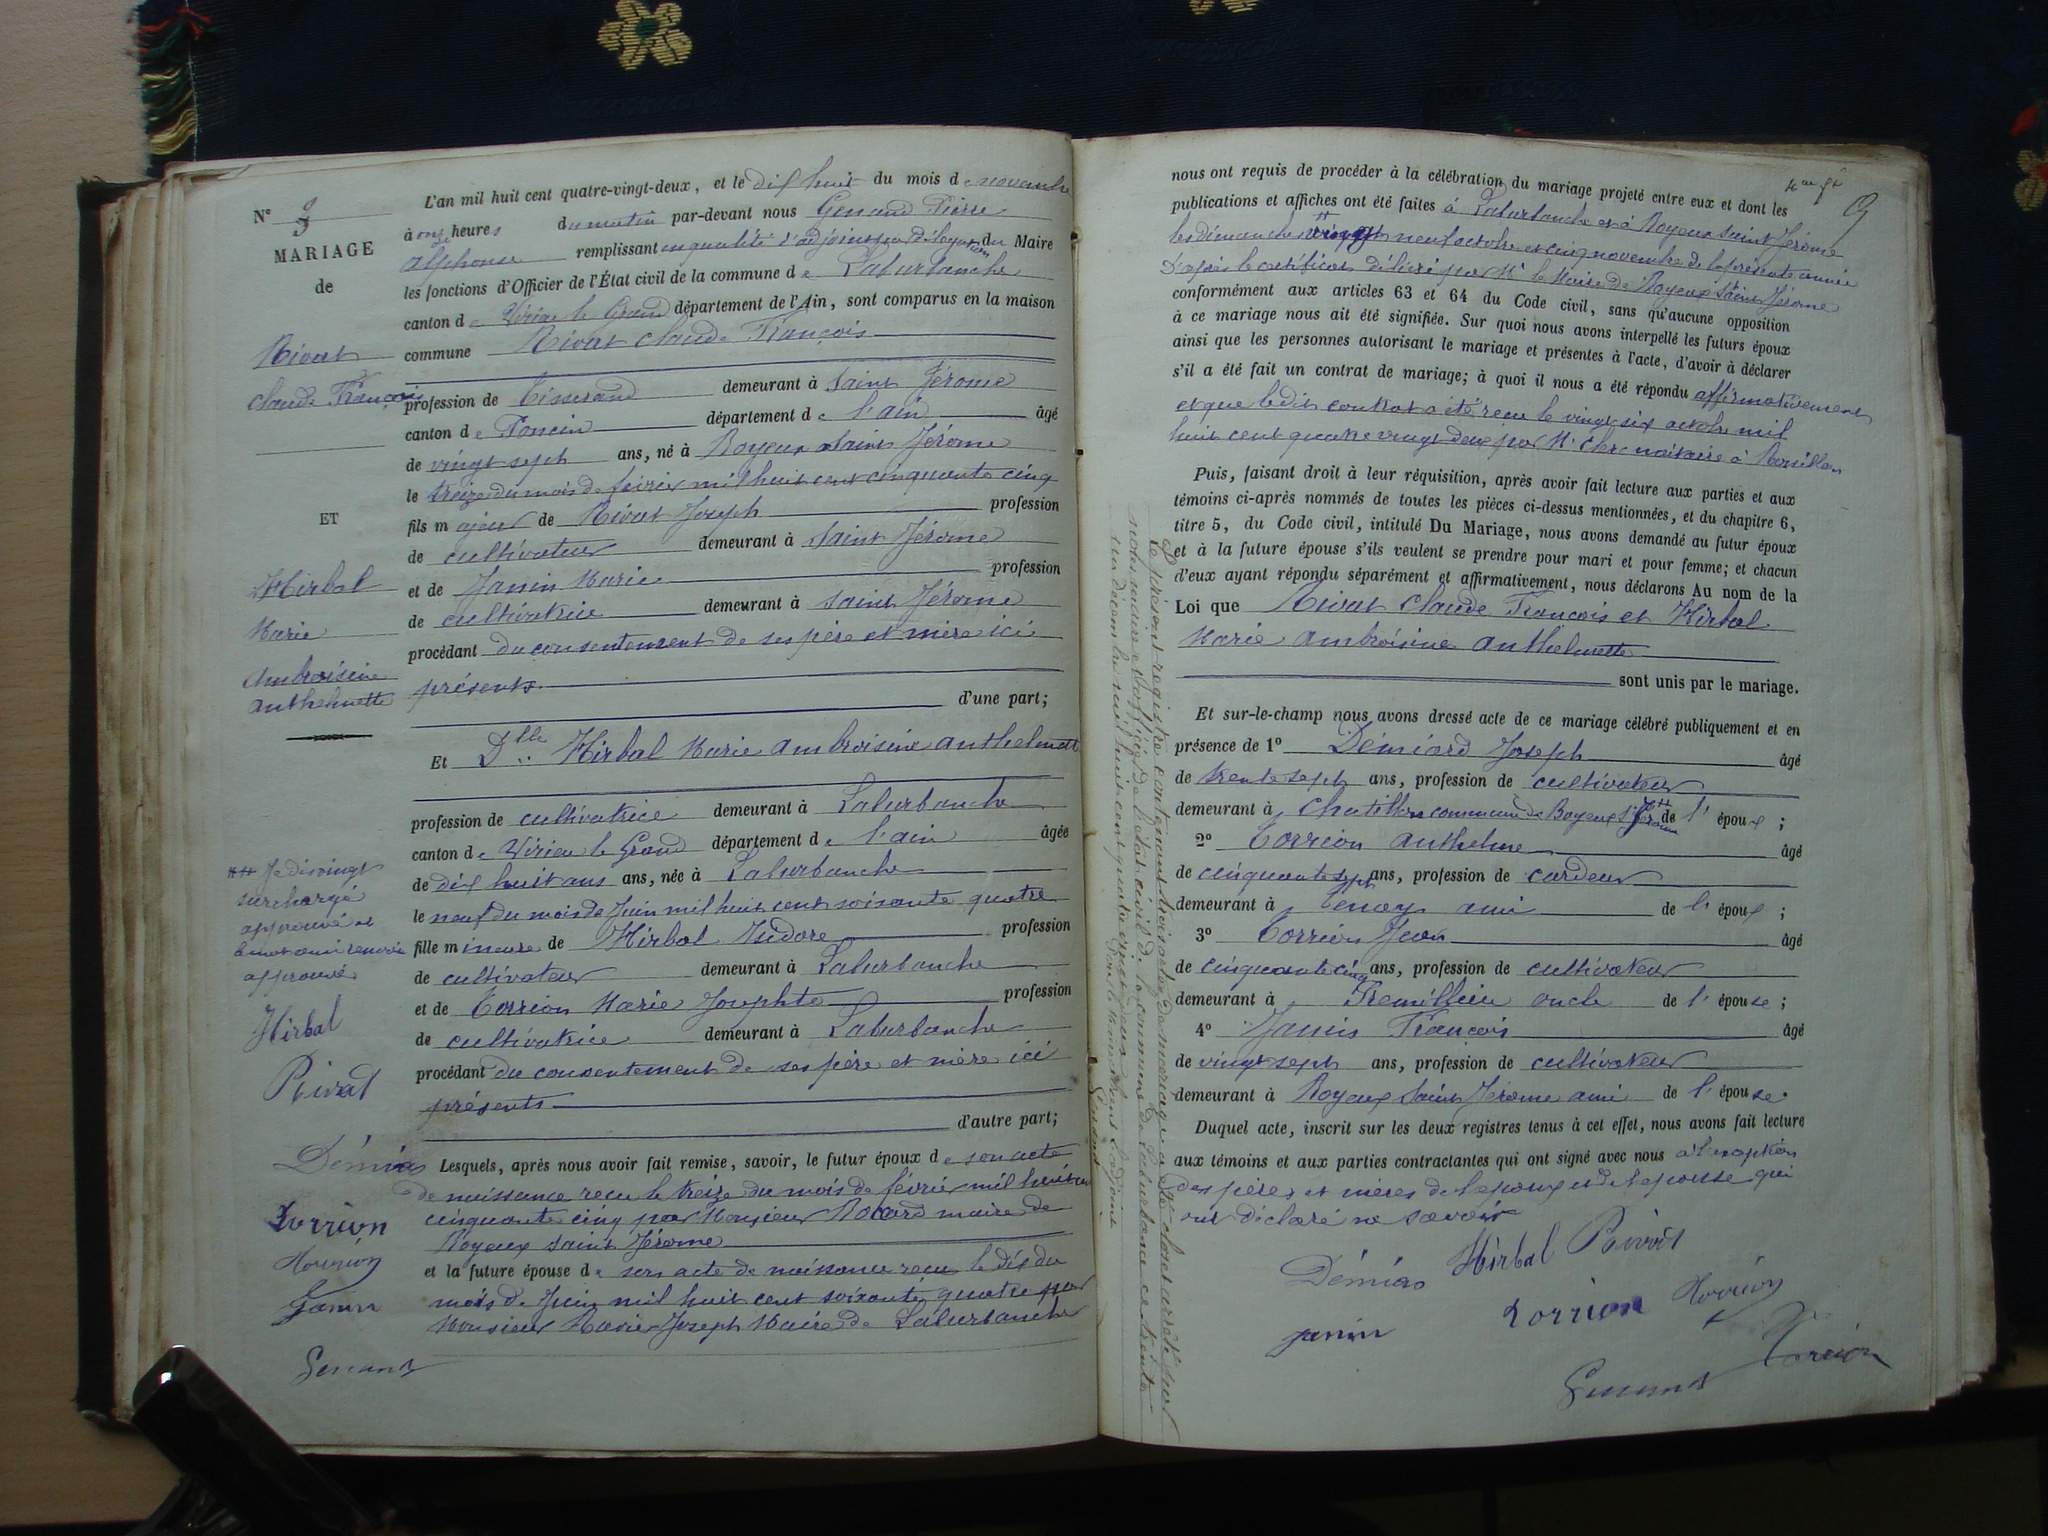 N° 3
MARIAGE
de
Rivat
Claude François
ET
Hirbal
Marie
Ambroisine
anthelmette
## Je dis vingt
surchargé
approuvé et
le mot ami
approuvé
Hirbal
Rivat
Démias
Torrion
Torrion
Janin
Genand
L'an mil huit cent quatre-vingt-deux, et le dix huit du mois de novembre
à onze heures du matin par-devant nous Genand Pierre
alphonse remplissant en qualité d'adjoint par délégation du Maire
les fonctions d'Officier de l'État civil de la commune de Laburbanche
canton de Virieu le Grand département de l'Ain, sont comparus en la maison
commune Rivat Claude François
profession de Tisserand demeurant à Saint Jérome
canton de Poncin département de l'ain âgé
de vingt sept ans, né à Boyeux Saint Jérome
le treize du mois de février mil huit cent cinquante cinq
fils majeur de Rivat Joseph profession
de cultivateur demeurant à Saint Jérome
et de Janin Marie profession
de cultivatrice demeurant à saint Jérome
procédant du consentement de ses père et mère ici
présents
d'une part;
Et Dlle Hirbal Marie ambroisine anthelmette
profession de cultivatrice demeurant à Laburbanche
canton de Virieu le Grand département de l'ain âgée
de dix huit ans ans, née à Laburbanche
le neuf du mois de Juin mil huit cent soixante quatre
fille mineure de Hirbal Isidore profession
de cultivateur demeurant à Laburbanche
et de Torrion Marie Josephte profession
de cultivatrice demeurant à Laburbanche
procédant du consentement de ses père et mère ici
présents
d'autre part;
Lesquels, après nous avoir fait remise, savoir, le futur époux de son acte
de naissance reçu le treize du mois de février mil huit cent
cinquante cinq par Monsieur maire de
Boyeux Saint Jérome
et la future épouse de son acte de naissance reçu le dix du
mois de Juin mil huit cent soixante quatre par
Monsieur Joseph Maire de Laburbanche
9
nous ont requis de procéder à la célébration du mariage projeté entre eux et dont les
publications et affiches ont été faites à Laburbanche et à Boyeux Saint Jérome
les dimanches vingt neuf octobre et cinq novembre de la présente année
D'après le certificat délivré par Mr le Maire de Boyeux Saint Jérome
conformément aux articles 63 et 64 du Code civil, sans qu'aucune opposition
à ce mariage nous ait été signifiée. Sur quoi nous avons interpellé les futurs époux
ainsi que les personnes autorisant le mariage et présentes à l'acte, d'avoir à déclarer
s'il a été fait un contrat de mariage; à quoi il nous a été répondu affirmativement
et que le dit contrat a été reçu le vingt six octobre mil
huit cent quatre vingt deux par Mr Clerc notaire à Rossillon
Puis, faisant droit à leur réquisition, après avoir fait lecture aux parties et aux
témoins ci-après nommés de toutes les pièces ci-dessus mentionnées, et du chapitre 6,
titre 5, du Code civil, intitulé Du Mariage, nous avons demandé au futur époux
et à la future épouse s'ils veulent se prendre pour mari et pour femme; et chacun
d'eux ayant répondu séparément et affirmativement, nous déclarons Au nom de la
Loi que Rivat Claude François et Hirbal
Marie ambroisine anthelmette
sont unis par le mariage.
Et sur-le-champ nous avons dressé acte de ce mariage célébré publiquement et en
présence de 1° Démiard Joseph âgé
de trente sept ans, profession de cultivateur
demeurant à Chatillon commune de Boyeux St Jérome de l'époux;
2° Torrion Anthelme âgé
de cinquante sept ans, profession de cardeur
demeurant à Tenay ami de l'époux;
3° Torrion Jean âgé
de cinquante cinq ans, profession de cultivateur
demeurant à Prémillieu oncle de l'épouse;
4° Janin François âgé
de vingt sept ans, profession de cultivateur
demeurant à Boyeux Saint Jérome ami de l'épouse.
Duquel acte, inscrit sur les deux registres tenus à cet effet, nous avons fait lecture
aux témoins et aux parties contractantes qui ont signé avec nous à l'exception
des pères et mères de l'époux et de l'épouse qui
ont déclaré ne savoir
Démias Hirbal Rivat
Janin Torrion Torrion
Genand Torrion
Le présent registre contenant trois actes de mariage a été clos et arrêté par
nous maire et officier de l'état civil de la commune de Laburbanche ce trente
un décembre mil huit cent quatre vingt deux
Genand